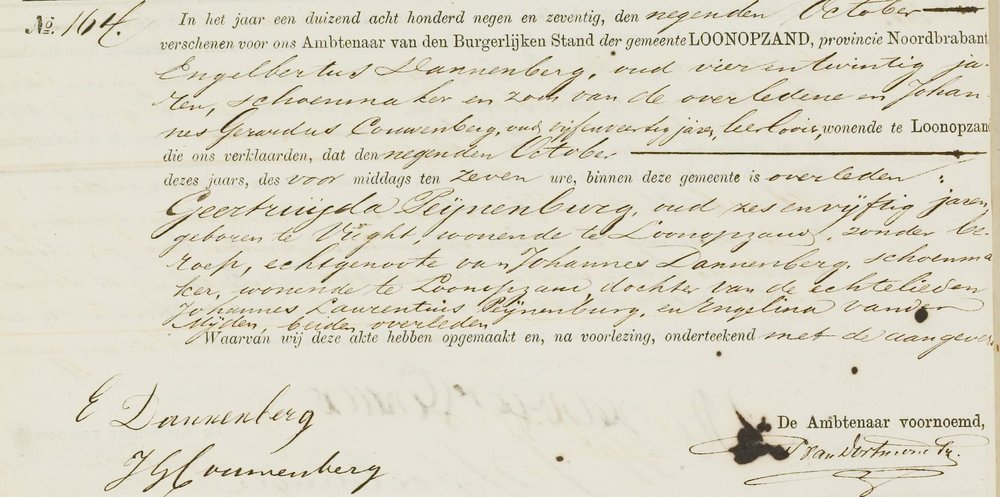 No. 164.
In het jaar een duizend acht honderd negen en zeventig, den negenden October
verschenen voor ons Ambtenaar van den Burgerlijken Stand der gemeente LOONOPZAND, provincie Noordbrabant
Engelbertus Dannenberg, oud vier en twintig ja-
ren, schoenmaker en zoon van de overledene en Johan-
nes Gerardus Couwenberg, oud vijfenveertig jaren, leerlooier, wonende te Loonopzand
die ons verklaarden, dat den negenden October
dezes jaars, des voor middags ten zeven ure, binnen deze gemeente is overleden:
Geertruijda Peijnenburg, oud zes en vijftig jaren,
geboren te Vught, wonende te Loonopzand, zonder be-
roep, echtgenoote van Johannes Dannenberg, schoenma-
ker, wonende te Loonopzand dochter van de echtelieden
Johannes Laurentius Peijnenburg, en Engelina vander
Mijden, beiden overleden
Waarvan wij deze akte hebben opgemaakt en, na voorlezing, onderteekend met de aangevers
E Dannenberg
De Ambtenaar voornoemd,
JG Couwenberg